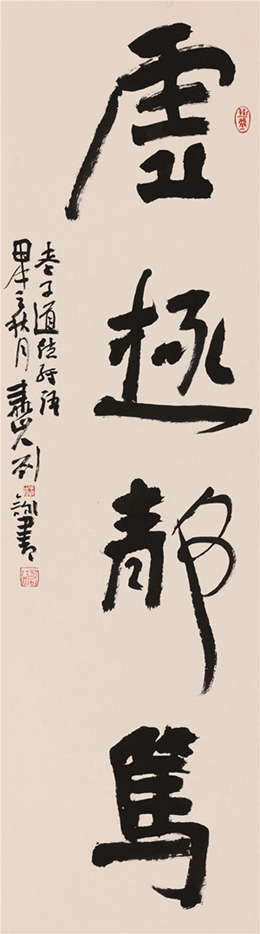 虛極靜篤
老子道德經語
甲午之秋月
書